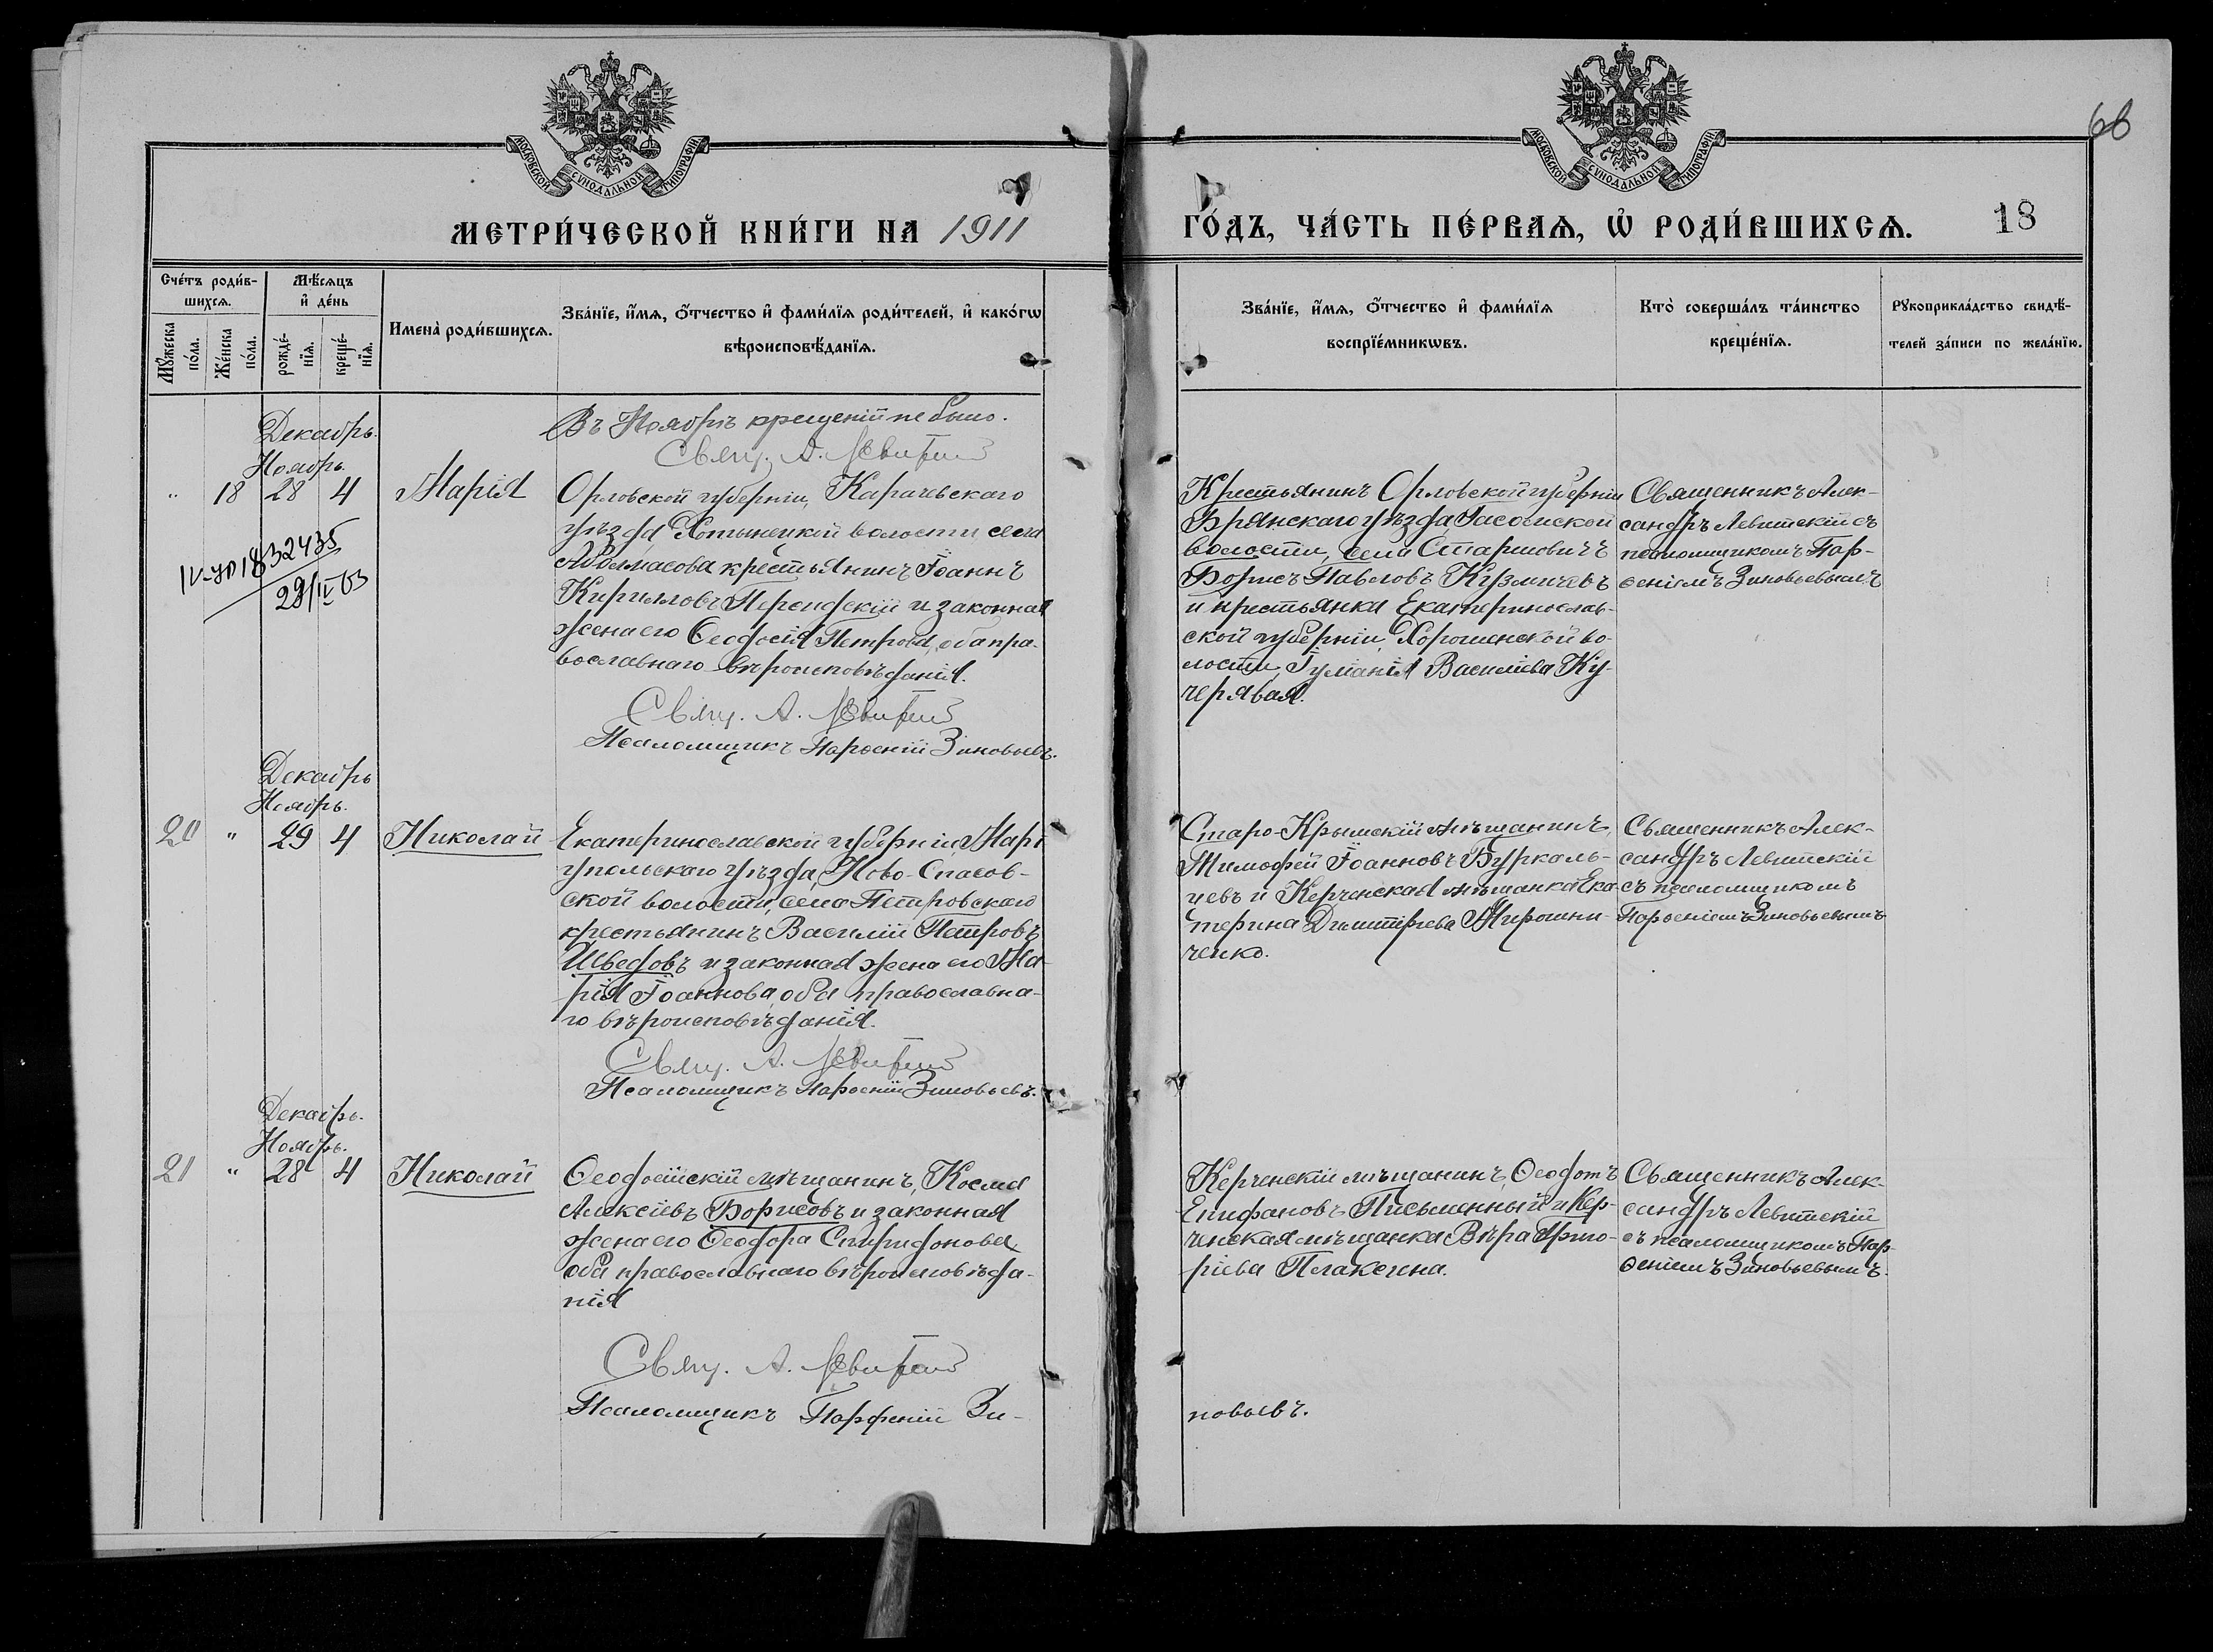 МОСКОВСКОЙ СѴНОДАЛЬНОЙ ТИПОГРАФІИ
МОСКОВСКОЙ СѴНОДАЛЬНОЙ ТИПОГРАФІИ
66
МЕТРИ́ЧЕСКОЙ КНИ́ГИ НА 1911
ГО́ДЪ, ЧА́СТЬ ПЕ́РВАѦ, Ѡ҆ РОДИ́ВШИХСѦ.
18
Сче́тъ роди́в-
шихсѧ.
Мꙋ́жеска
по́ла.
Же́нска
по́ла.
Мѣ́сѧцъ
и҆ де́нь
рожде́-
нїѧ.
креще́-
нїѧ.
Имена̀ роди́вшихсѧ.
Зва́нїе, и҆́мѧ, ѻ҆́тчество и҆ фами́лїѧ роди́телей, и҆ како́гѡ
вѣроисповѣ́данїѧ.
Зва́нїе, и҆́мѧ, ѻ҆́тчество и҆ фами́лїѧ
воспрїе́мникѡвъ.
Кто̀ соверша́лъ та́инство
креще́нїѧ.
Рꙋкоприкла́дство свидѣ́-
телей за́писи по жела́нїю.
Въ Ноябрѣ крещеній не было.
Свящ. А. Левитскій
Декабрь.
Ноябрь.
" 18 28 4
Марія
Орловской губерніи, Карачевскаго
уѣзда Хотынецкой волости села
крестьянинъ Іоаннъ
Кирилловъ и законная
жена его Ѳеодосія Петрова, оба пра-
вославнаго вѣроисповѣданія.
Свящ. А. Левитскій
Псаломщикъ Парѳеній Зиновьевъ.
Крестьянинъ Орловской губерніи
Брянскаго уѣзда волости, села
Борисъ Павловъ Кузмичевъ
и крестьянка Екатеринослав-
ской губерніи, Хорошенской во-
лости, Іуліанія Василіева Ку-
черявая.
Священникъ Алек-
сандръ Левитскій съ
псаломщикомъ Пар-
ѳеніемъ Зиновьевымъ
832435
29/IV 63
Декабрь
Ноябрь.
20 " 29 4
Николай
Екатеринославской губерніи, Марі
упольскаго уѣзда, Ново-Спасов-
ской волости, села Петровскаго
крестьянинъ Василій Петровъ
Шведовъ и законная жена его Ма-
рія Іоаннова, оба православна-
го вѣроисповѣданія.
Свящ. А. Левитскій
Псаломщикъ Парѳеній Зиновьевъ.
Старо-Крымскій мѣщанинъ,
Тимофей Іоанновъ Бурколь-
цевъ и Керченская мѣщанка Ека-
терина Димитріева Мирошни-
ченко.
Священникъ Алек-
сандръ Левитскій
съ псаломщикомъ
Парѳеніемъ Зиновьевымъ
Декабрь.
Ноябрь.
21 " 28 4
Николай
Ѳеодосійскій мѣщанинъ, Косма
Алексіевъ Борисовъ и законная
жена его Ѳеодора Спиридонова,
оба православнаго вѣроисповѣда-
нія
Свящ. А. Левитскій
Псаломщикъ Парфеній Зи-
новьевъ.
Керченскій мѣщанинъ, Ѳеодотъ
Епифановъ Письменный и Кер-
ченская мѣщанка Вѣра Григо-
ріева Плаксина.
Священникъ Алек-
сандръ Левитскій
съ псаломщикомъ Пар-
ѳеніемъ Зиновьевымъ.